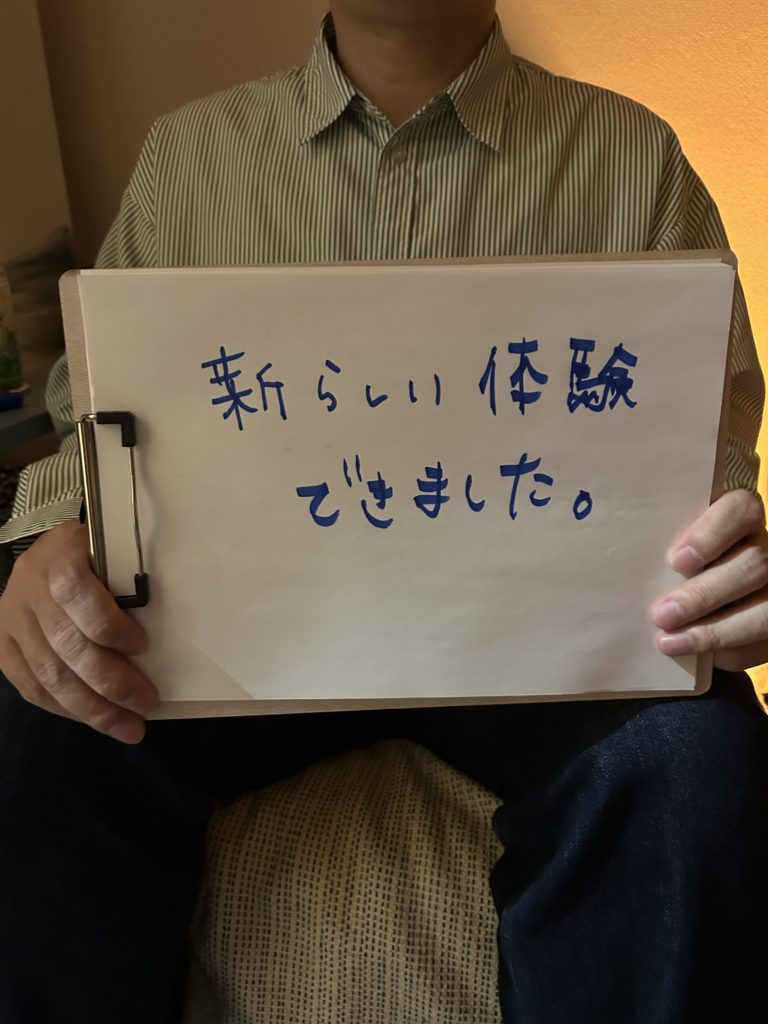 新らしい体験
できました。